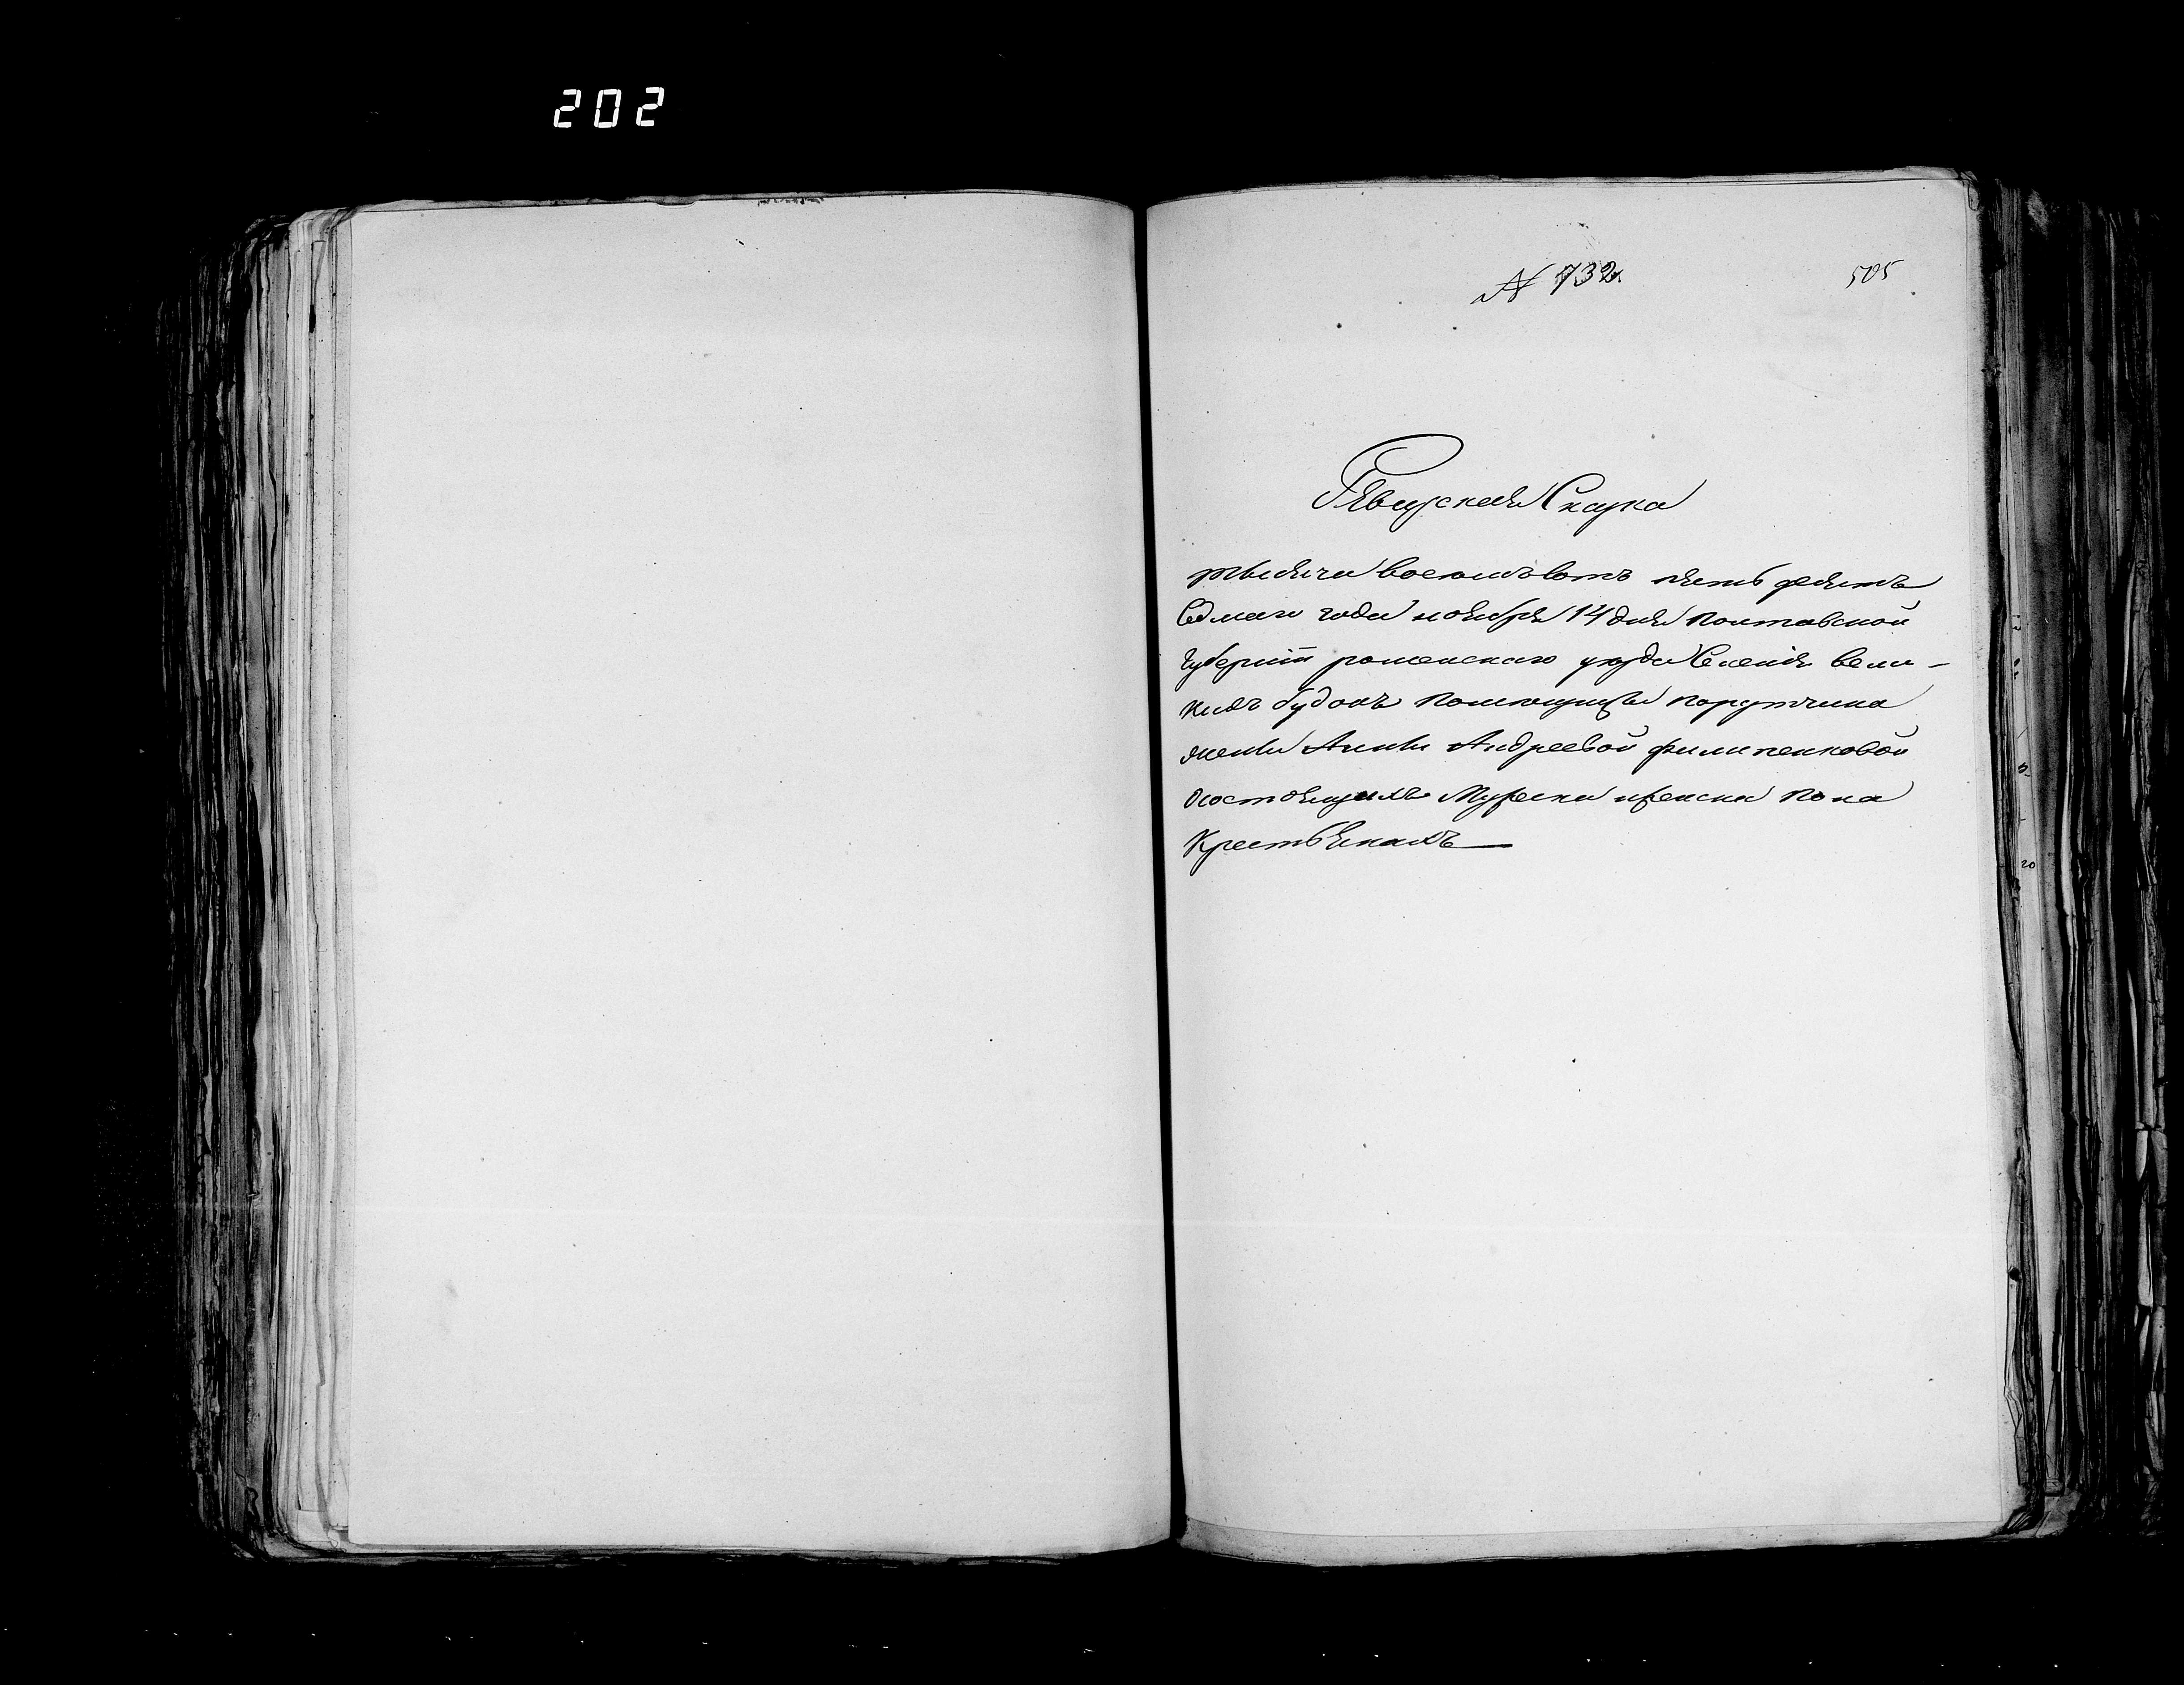 202
№ 732.
505
Ревизская Сказка
тысяча восемьсотъ пять десятъ
Седмаго года ноября 14 дня Полтавской
Губерніи роменскаго уезда Селенія вели-
кихъ будокъ Помещицы Порутчика
жены Анны Андреевой филипенковой
Осостоящихъ Мужеска иженска Пола
Крестьянахъ
20